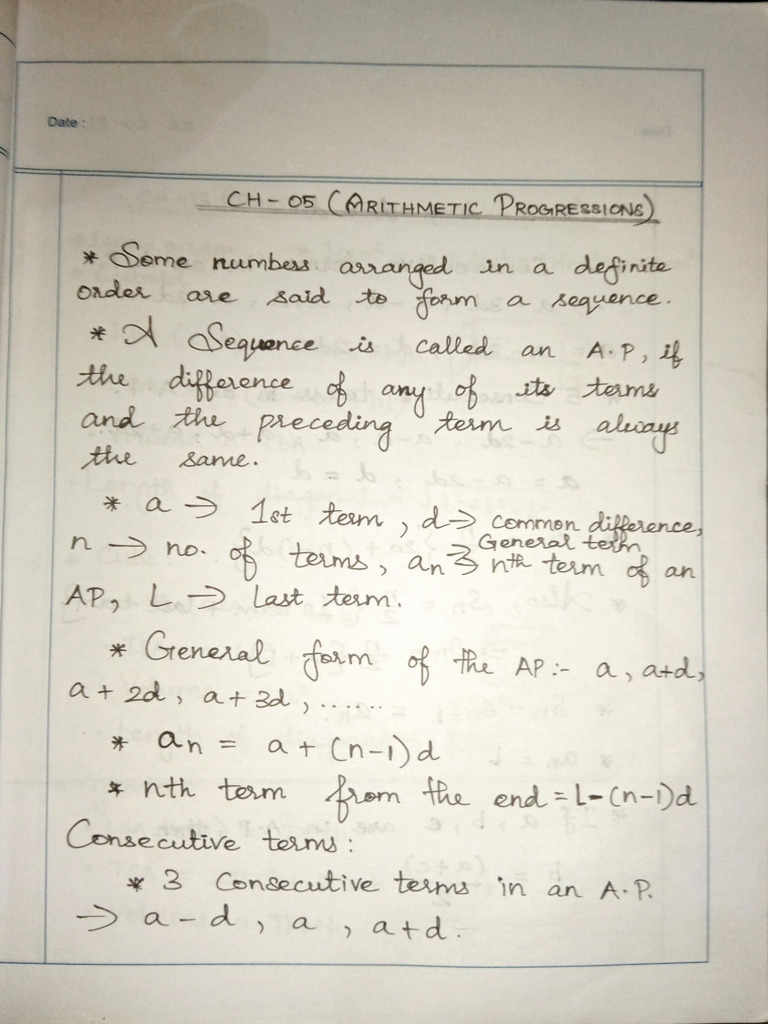 Date :
CH - 05 (ARITHMETIC PROGRESSIONS)
* Some numbers arranged in a definite
order are said to form a sequence.
* A Sequence is called an A.P, if
the difference of any of its terms
and the preceding term is always
the same.
* a → 1st term, d → common difference,
General term
n → no. of terms, an → nth term of an
AP, L → Last term.
* General form of the AP :- a, a+d,
a + 2d, a + 3d, ......
* an = a + (n-1)d
* nth term from the end = L-(n-1)d
Consecutive terms:
* 3 Consecutive terms in an A.P.
→ a - d, a, a+d.